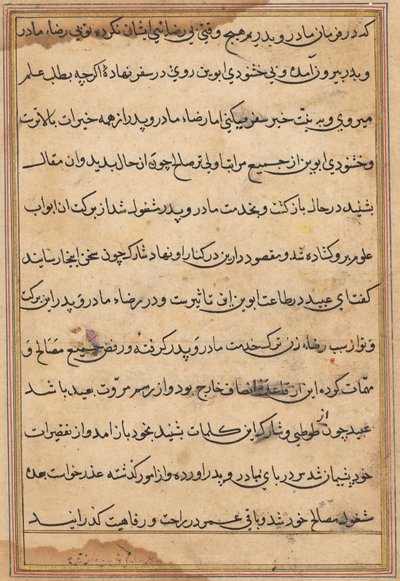 که در فرمان مادر و پدر هیچ وقتی بی رضائی ایشان نکرده تو بی رضاء مادر
و پدر بیرون آمدهٔ و بی خشنودی ابوین روی در سفر نهادهٔ اگرچه بطلب علم
میروی و به نیت خیر سفر میکنی اما رضاء مادر و پدر از همه خیرات بالاترست
و خشنودی ابوین از جمیع مرابتا ولی تر صالح چون از حال بدید و ان مقال
بشنید در حال بازگشت و بخدمت مادر و پدر مشغول شد از برکت ان ابواب
علوم برو گشاده شد و مقصود دارین در کنار او نهاد شارک چون سخن اینجا رسانید
گفت ای عبید در طاعت ابوین این تاثیرست و در رضاء مادر و پدر این برکت
و تو از سبب رضاء زن ترک خدمت مادر و پدر گرفتهٔ و رفض جمیع مصالح و
مهمات کرده این از قاعدهٔ انصاف خارج بود و از رسم مروت بعید باشد
عبید چون از طوطی و شارک این کلمات بشنید بخود باز امد و از تقصیرات
خود پشیمان شد سر در پای مادر و پدر اورده و از امور گذشته عذر خواست بعده
مشغول مصالح خود شد و باقی عمر در راحت و رفاهیت گذرانید